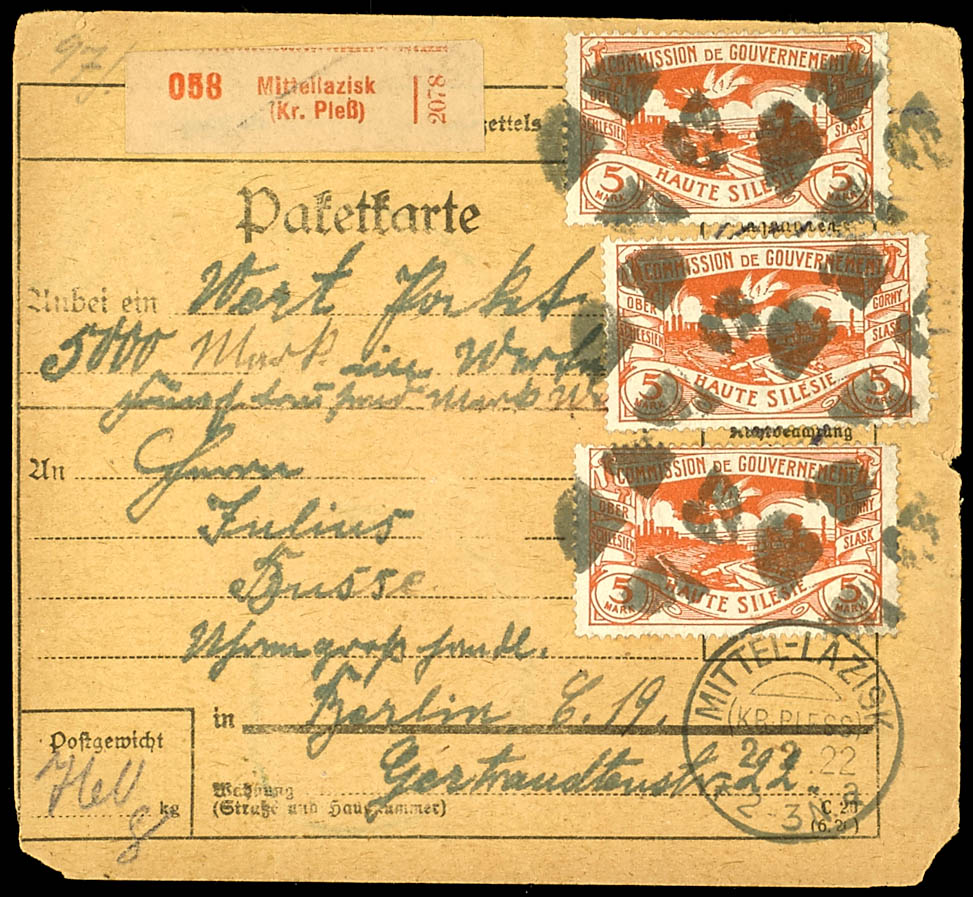 97
058 Mittellazisk
(Kr. Pleß)
2078
zettels
COMMISSION DE GOUVERNEMENT
OBER SCHLESIEN
GORNY SLASK
HAUTE SILESIE
5 MARK 5 MARK
Paketkarte
COMMISSION DE GOUVERNEMENT
OBER SCHLESIEN
GORNY SLASK
HAUTE SILESIE
5 MARK 5 MARK
Anbei ein Wert Paket
5000 Mark im Werte
fünftausend Mark
COMMISSION DE GOUVERNEMENT
OBER SCHLESIEN
GORNY SLASK
HAUTE SILESIE
5 MARK 5 MARK
An Herrn
Julius
Busse
Uhrengroßhandl.
in Berlin C. 19.
Gertraudtenstr. 22.
Postgewicht
kg
Wohnung
(Straße und Hausnummer)
MITTEL-LAZISK
(KR. PLESS)
22
2-3N
C 20